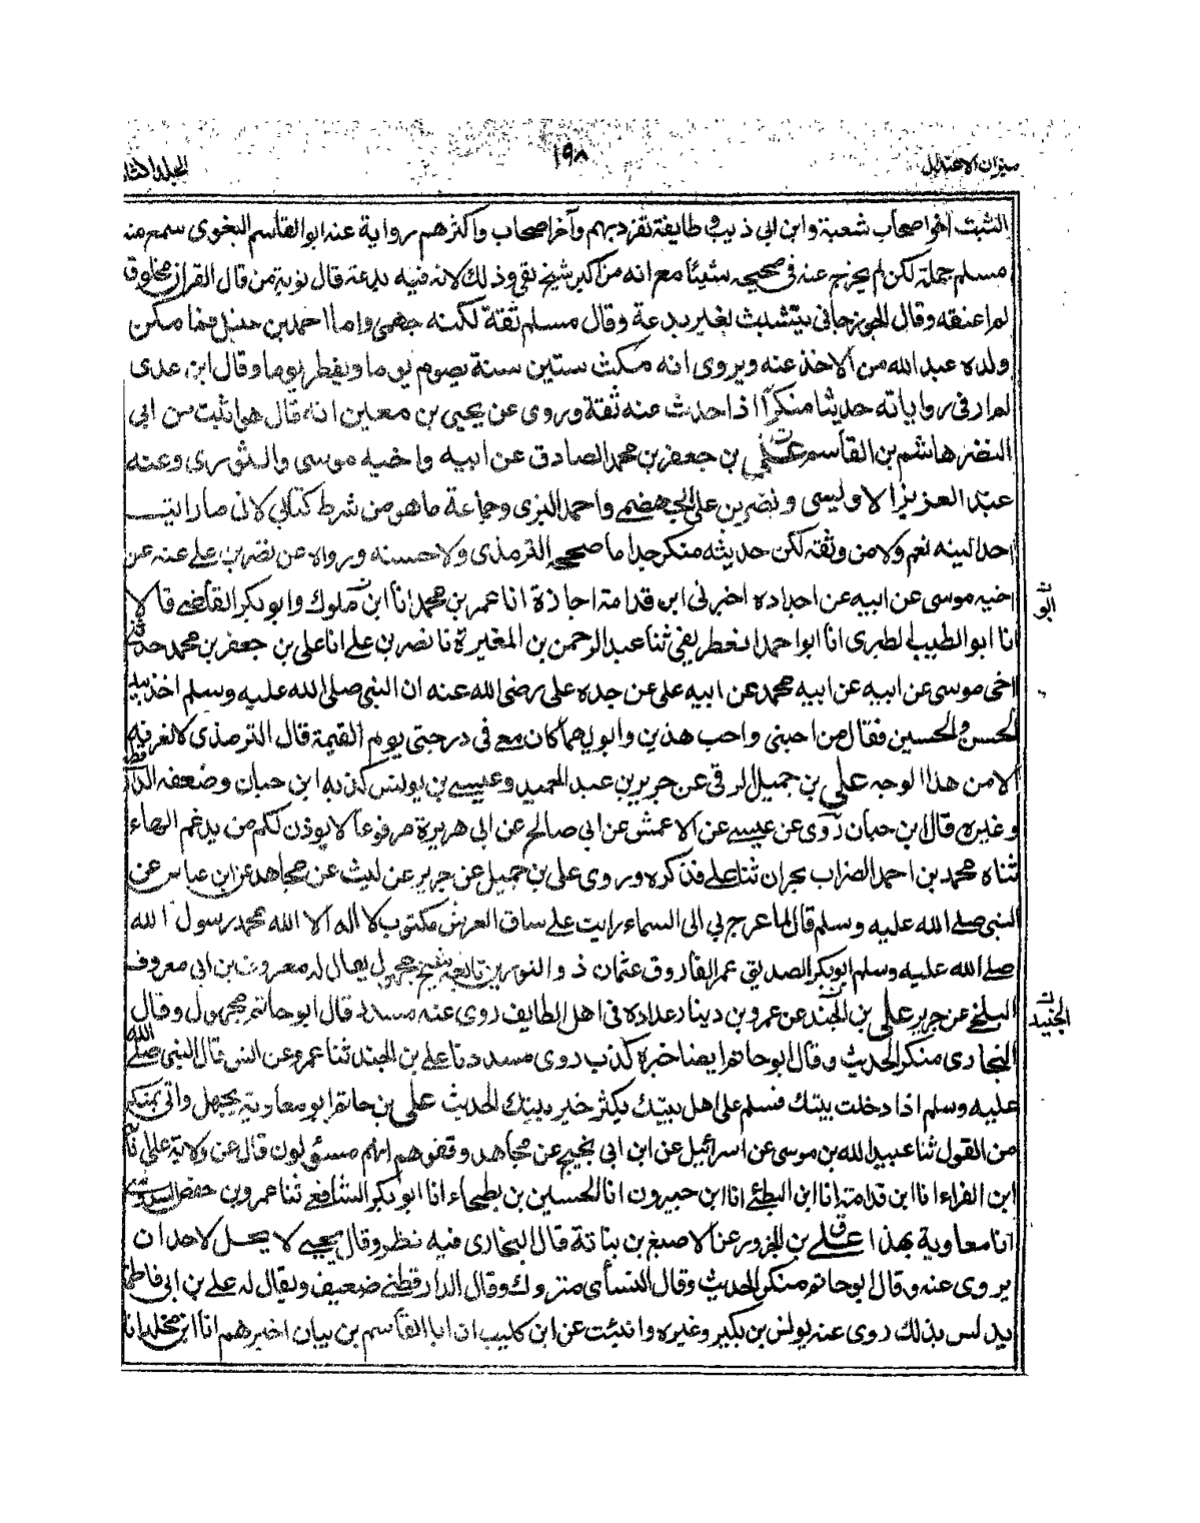 ميزان الاعتدال
١٩٨
المجلد الثا
الثبت آخر اصحاب شعبة وابن ابى ذيب فى طايفة تفرد بهم وآخر اصحاب واكثرهم رواية عنه ابو القاسم البغوى سمع منه
مسلم جملة لكن لم يخرج عنه فى صحيحه شيئا مع انه من اكبر شيخ لقى وذلك لانه فيه بدعة قال نوبة من قال القرآن مخلوق
لم اعنفه وقال الجوزجانى يتشبث بغير بدعة وقال مسلم ثقة لكنه جهمى واما احمد بن حنبل فما مكن
ولده عبد الله من الاخذ عنه ويروى انه مكث ستين سنة يصوم يوما ويفطر يوما وقال ابن عدى
لم ار فى رواياته حديثا منكرا اذا حدث عنه ثقة وروى عن يحيى بن معين انه قال هو اثبت من ابى
النضر هاشم بن القاسم على بن جعفر بن محمد الصادق عن ابيه واخيه موسى والثورى وعنه
عبد العزيز الاويسى ونصر بن على الجهضمى واحمد البزى وجماعة ما هو من شرط كتابى لانى ما رايت
احدا لينه نعم ولا من وثقه لكن حديثه منكر جدا ما صححه الترمذى ولا حسنه ورواه عن نصر بن على عنه عن
اخيه موسى عن ابيه عن اجداده اخبرنى ابن قدامة اجازة انا عمر بن محمد انا ابن ملوك وابو بكر القاضى قالا
انا ابو الطيب الطبرى انا ابو احمد الغطريفى ثنا عبد الرحمن بن المغيرة نا نصر بن على انا على بن جعفر بن محمد حدثنى
اخى موسى عن ابيه عن ابيه محمد عن ابيه على عن جده على رضى الله عنه ان النبى صلى الله عليه وسلم اخذ بيد
الحسن والحسين فقال من احبنى واحب هذين وابويهما كان معى فى درجتى يوم القيمة قال الترمذى لا نعرفه
الا من هذا الوجه على بن جميل الرقى عن جرير بن عبد الحميد وعيسى بن يونس كذبه ابن حبان وضعفه الدار قطنى
وغيره قال ابن حبان روى عن عيسى عن الاعمش عن ابى صالح عن ابى هريرة مرفوعا لا يوذن لكم من يدغم الهاء
ثناه محمد بن احمد الضراب بحران ثنا على فذكره وروى على بن جميل عن جرير عن ليث عن مجاهد عن ابن عباس عن
النبى صلى الله عليه وسلم قال لما عرج بى الى السماء رايت على ساق العرش مكتوب لا اله الا الله محمد رسول الله
صلى الله عليه وسلم ابو بكر الصديق عمر الفاروق عثمان ذو النورين تابعه شيخ مجهول يقال له معروف بن ابى معروف
البلخى عن جرير على بن الجند عن عمرو بن دينار عداده فى اهل الطايف روى عنه مسدد قال ابو حاتم مجهول وقال
البخارى منكر الحديث وقال ابو حاتم ايضا خبره كذب روى مسدد نا على بن الجند ثنا عمرو عن انس قال النبى صلى الله
عليه وسلم اذا دخلت بيتك فسلم على اهل بيتك يكثر خير بيتك الحديث على بن حاتم ابو معاوية يجهل واتى بمنكر
من القول ثنا عبيد الله بن موسى عن اسرائيل عن ابن ابى نجيح عن مجاهد وقفوهم انهم مسئولون قال عن ولاية على
ابن الفراء انا ابن قدامة انا ابن البطى انا ابن خيرون انا الحسين بن بطحاء انا ابو بكر الشافعى ثنا عمرو بن حفص السدوسى
انا معاوية بهذا على بن الحزور عن الاصبغ بن نباتة قال البخارى فيه نظر وقال يحيى لا يحل لاحد ان
يروى عنه وقال ابو حاتم منكر الحديث وقال النسأى متروك وقال الدارقطنى ضعيف ويقال له على بن ابى فاطمة
يدلس بذلك روى عنه يونس بن بكير وغيره وانبئت عن ابن كليب ان ابا القاسم بن بيان اخبرهم انا ابن مخلد انا
ابو
الجنيد